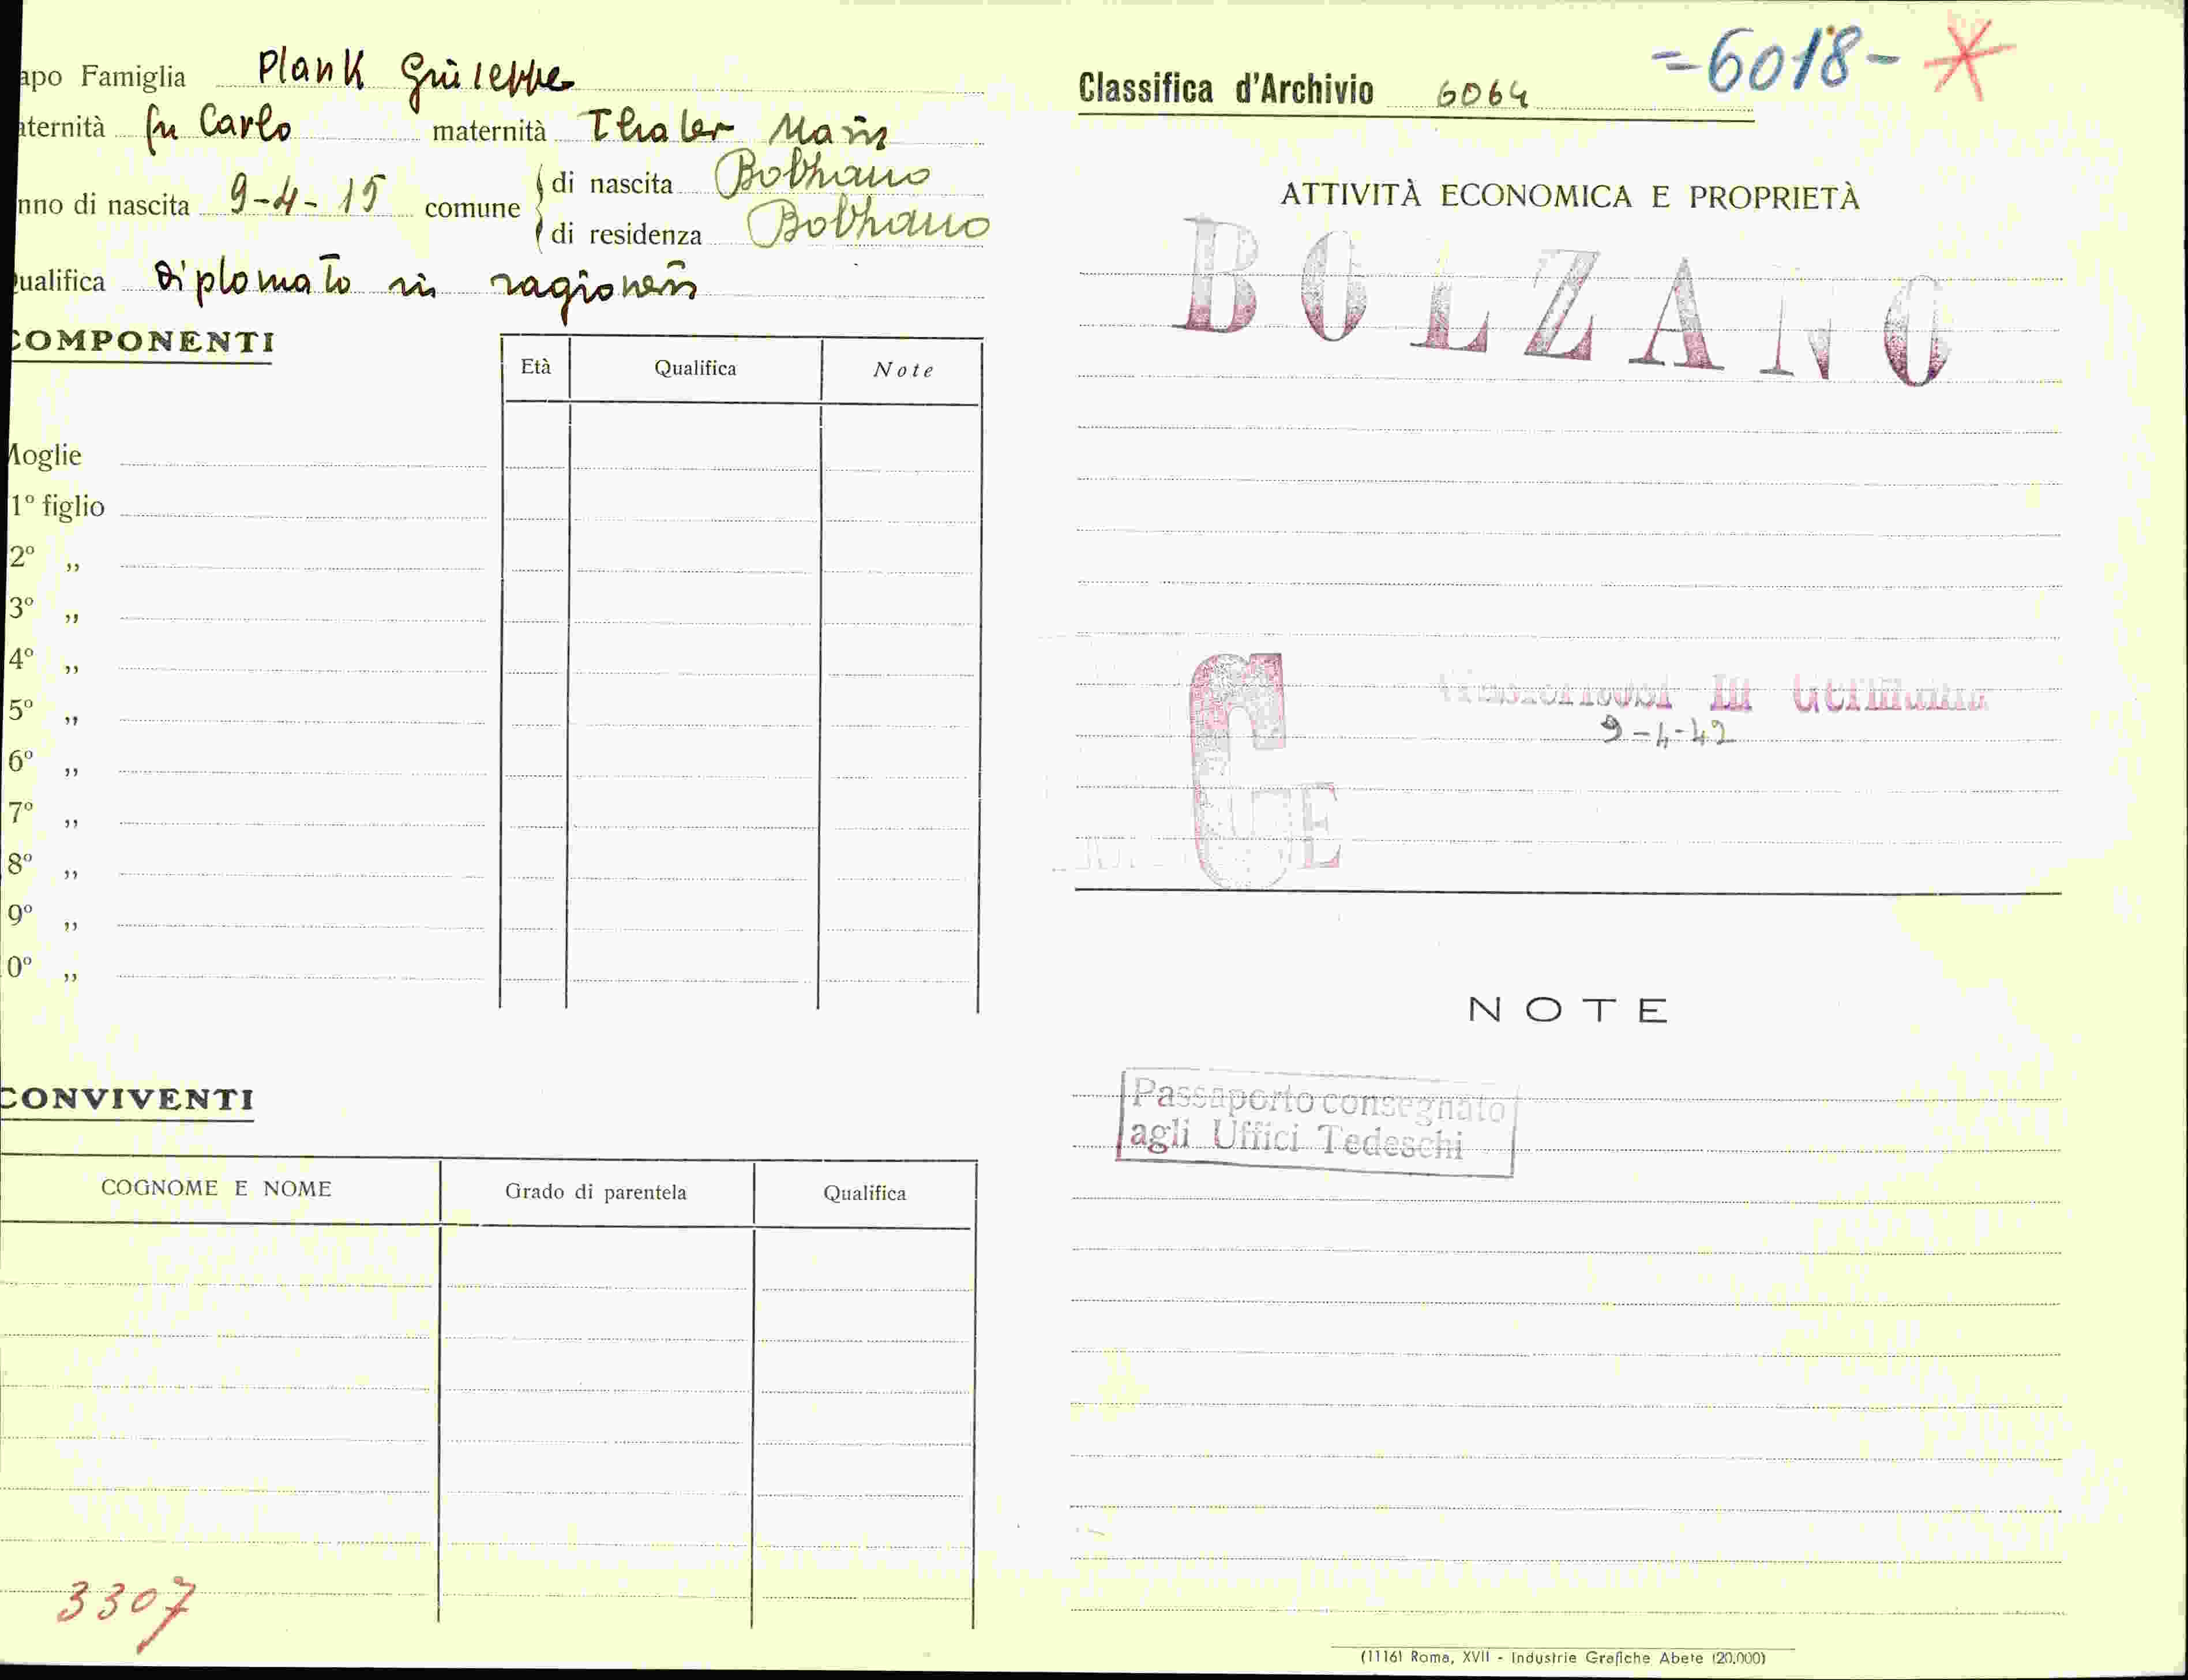 apo Famiglia Plank Giuseppe
aternità fu Carlo maternità Thaler Maria
nno di nascita 9-4-15 comune di nascita Bolzano
di residenza Bolzano
ualifica Diplomato in ragioneria
COMPONENTI
Età Qualifica Note
Moglie
1º figlio
2º ,,
3º ,,
4º ,,
5º ,,
6º ,,
7º ,,
8º ,,
9º ,,
0º ,,
CONVIVENTI
COGNOME E NOME Grado di parentela Qualifica
3307
=6018-
Classifica d'Archivio 6064
ATTIVITÀ ECONOMICA E PROPRIETÀ
BOLZANO
in Germania
9-4-42
C
E
NOTE
Passaporto consegnato
agli Uffici Tedeschi
(1116) Roma, XVII - Industrie Grafiche Abete (20.000)